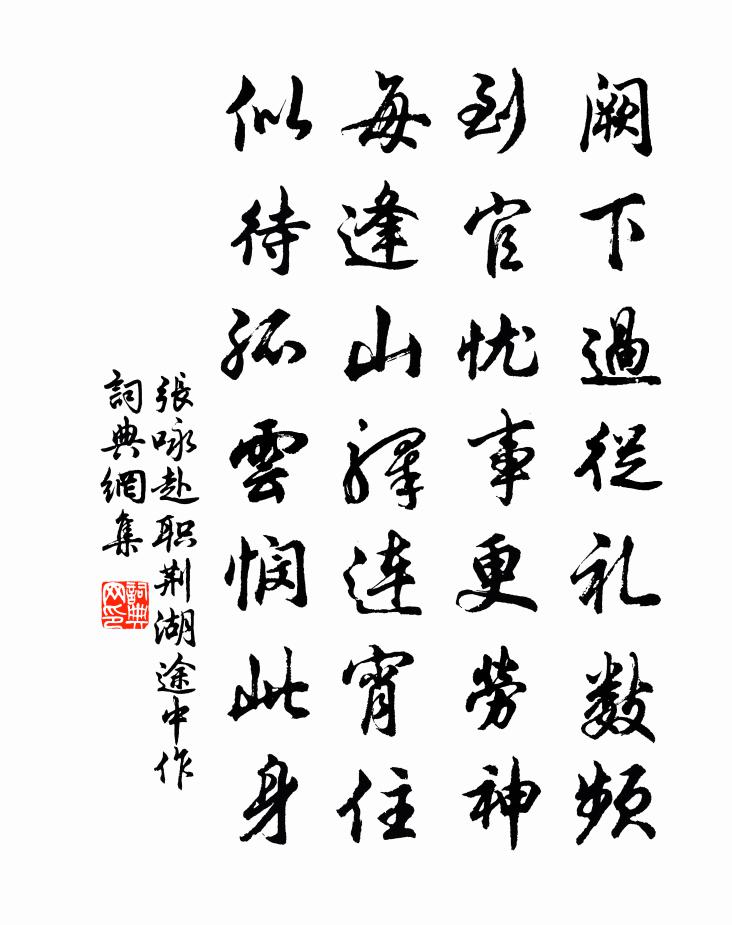 阙下過從礼数頻
到官忧事更勞神
每逢山驛連宵住
似待孤雲悯此身
張咏赴职荆湖途中作
詞典網集
詞典网印